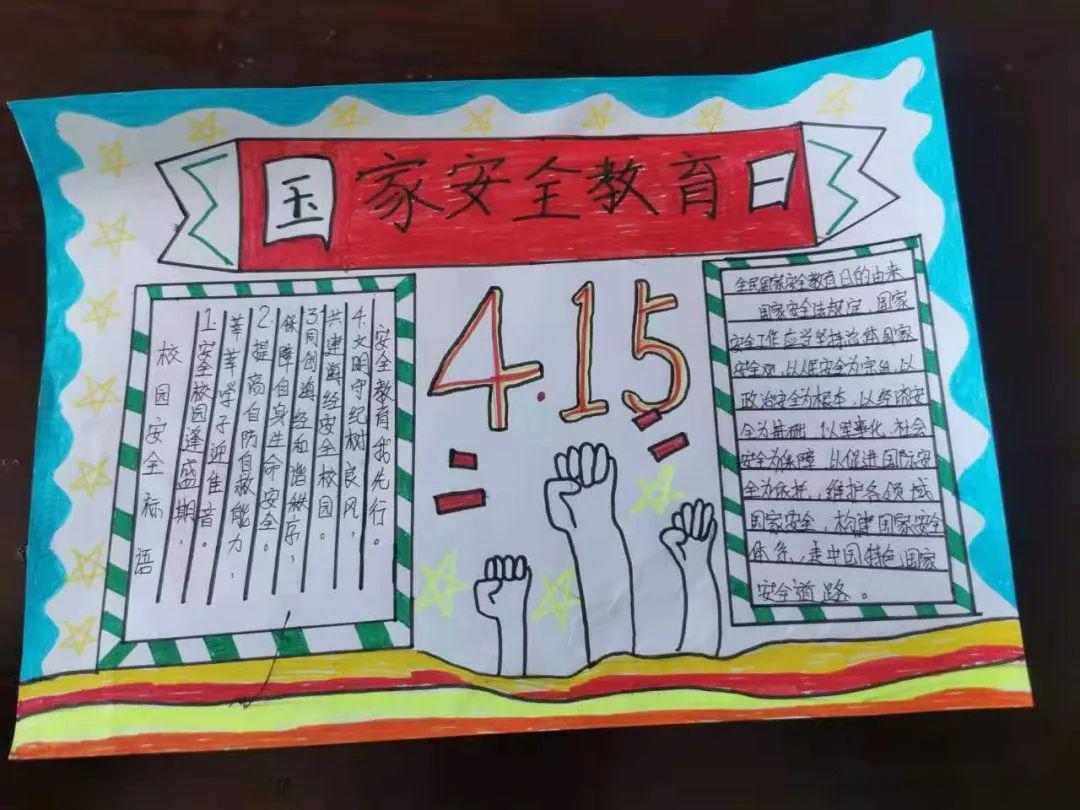 国家安全教育日
4.15
校园安全标语
1.安全校园逢盛期,
莘莘学子迎佳音。
2.提高自防自救能力,
保障自身生命安全。
3.同创海经和谐秩序,
共建海经安全校园
4.文明守纪树良风,
安全教育我先行。
全民国家安全教育日的由来
国家安全法规定,国家
安全工作应当坚持总体国家
安全观,以人民安全为宗旨,以
政治安全为根本,以经济安
全为基础,以军事化、社会
安全为保障,以促进国际安
全为依托,维护各领域
国家安全,构建国家安全
体系,走中国特色国家
安全道路。